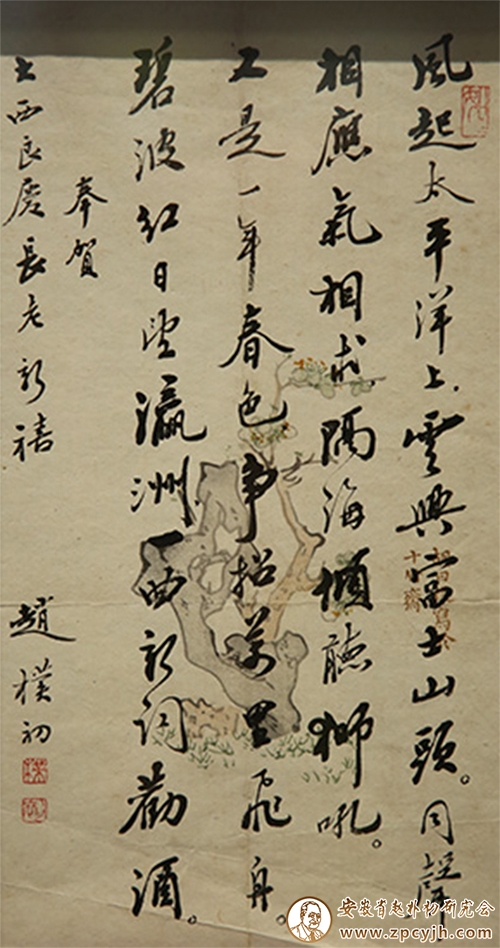 風起太平洋上、雲興富士山頭。同聲
相應氣相求。隔海傾聽獅吼。
又是一年春色争招萬里飛舟。
碧波红日望瀛洲一曲新詞勸酒。
奉賀
大西良慶長老新禧
趙樸初
十竹齋
安徽省赵朴初研究会
www.zpcyjh.com